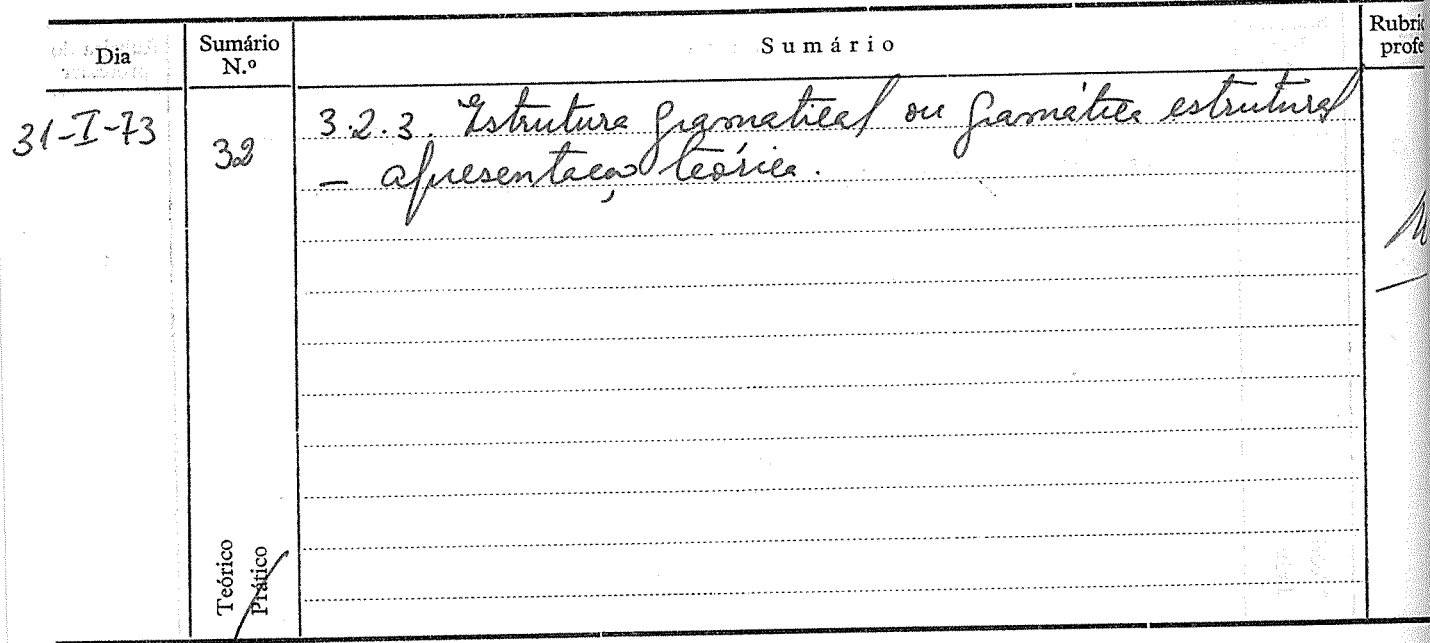 Dia
Sumário N.º
Sumário
Rubric
profe
31-I-73
32
3.2.3. Estrutura gramatical ou gramática estrutural
– apresentação teórica.
Teórico
Prático